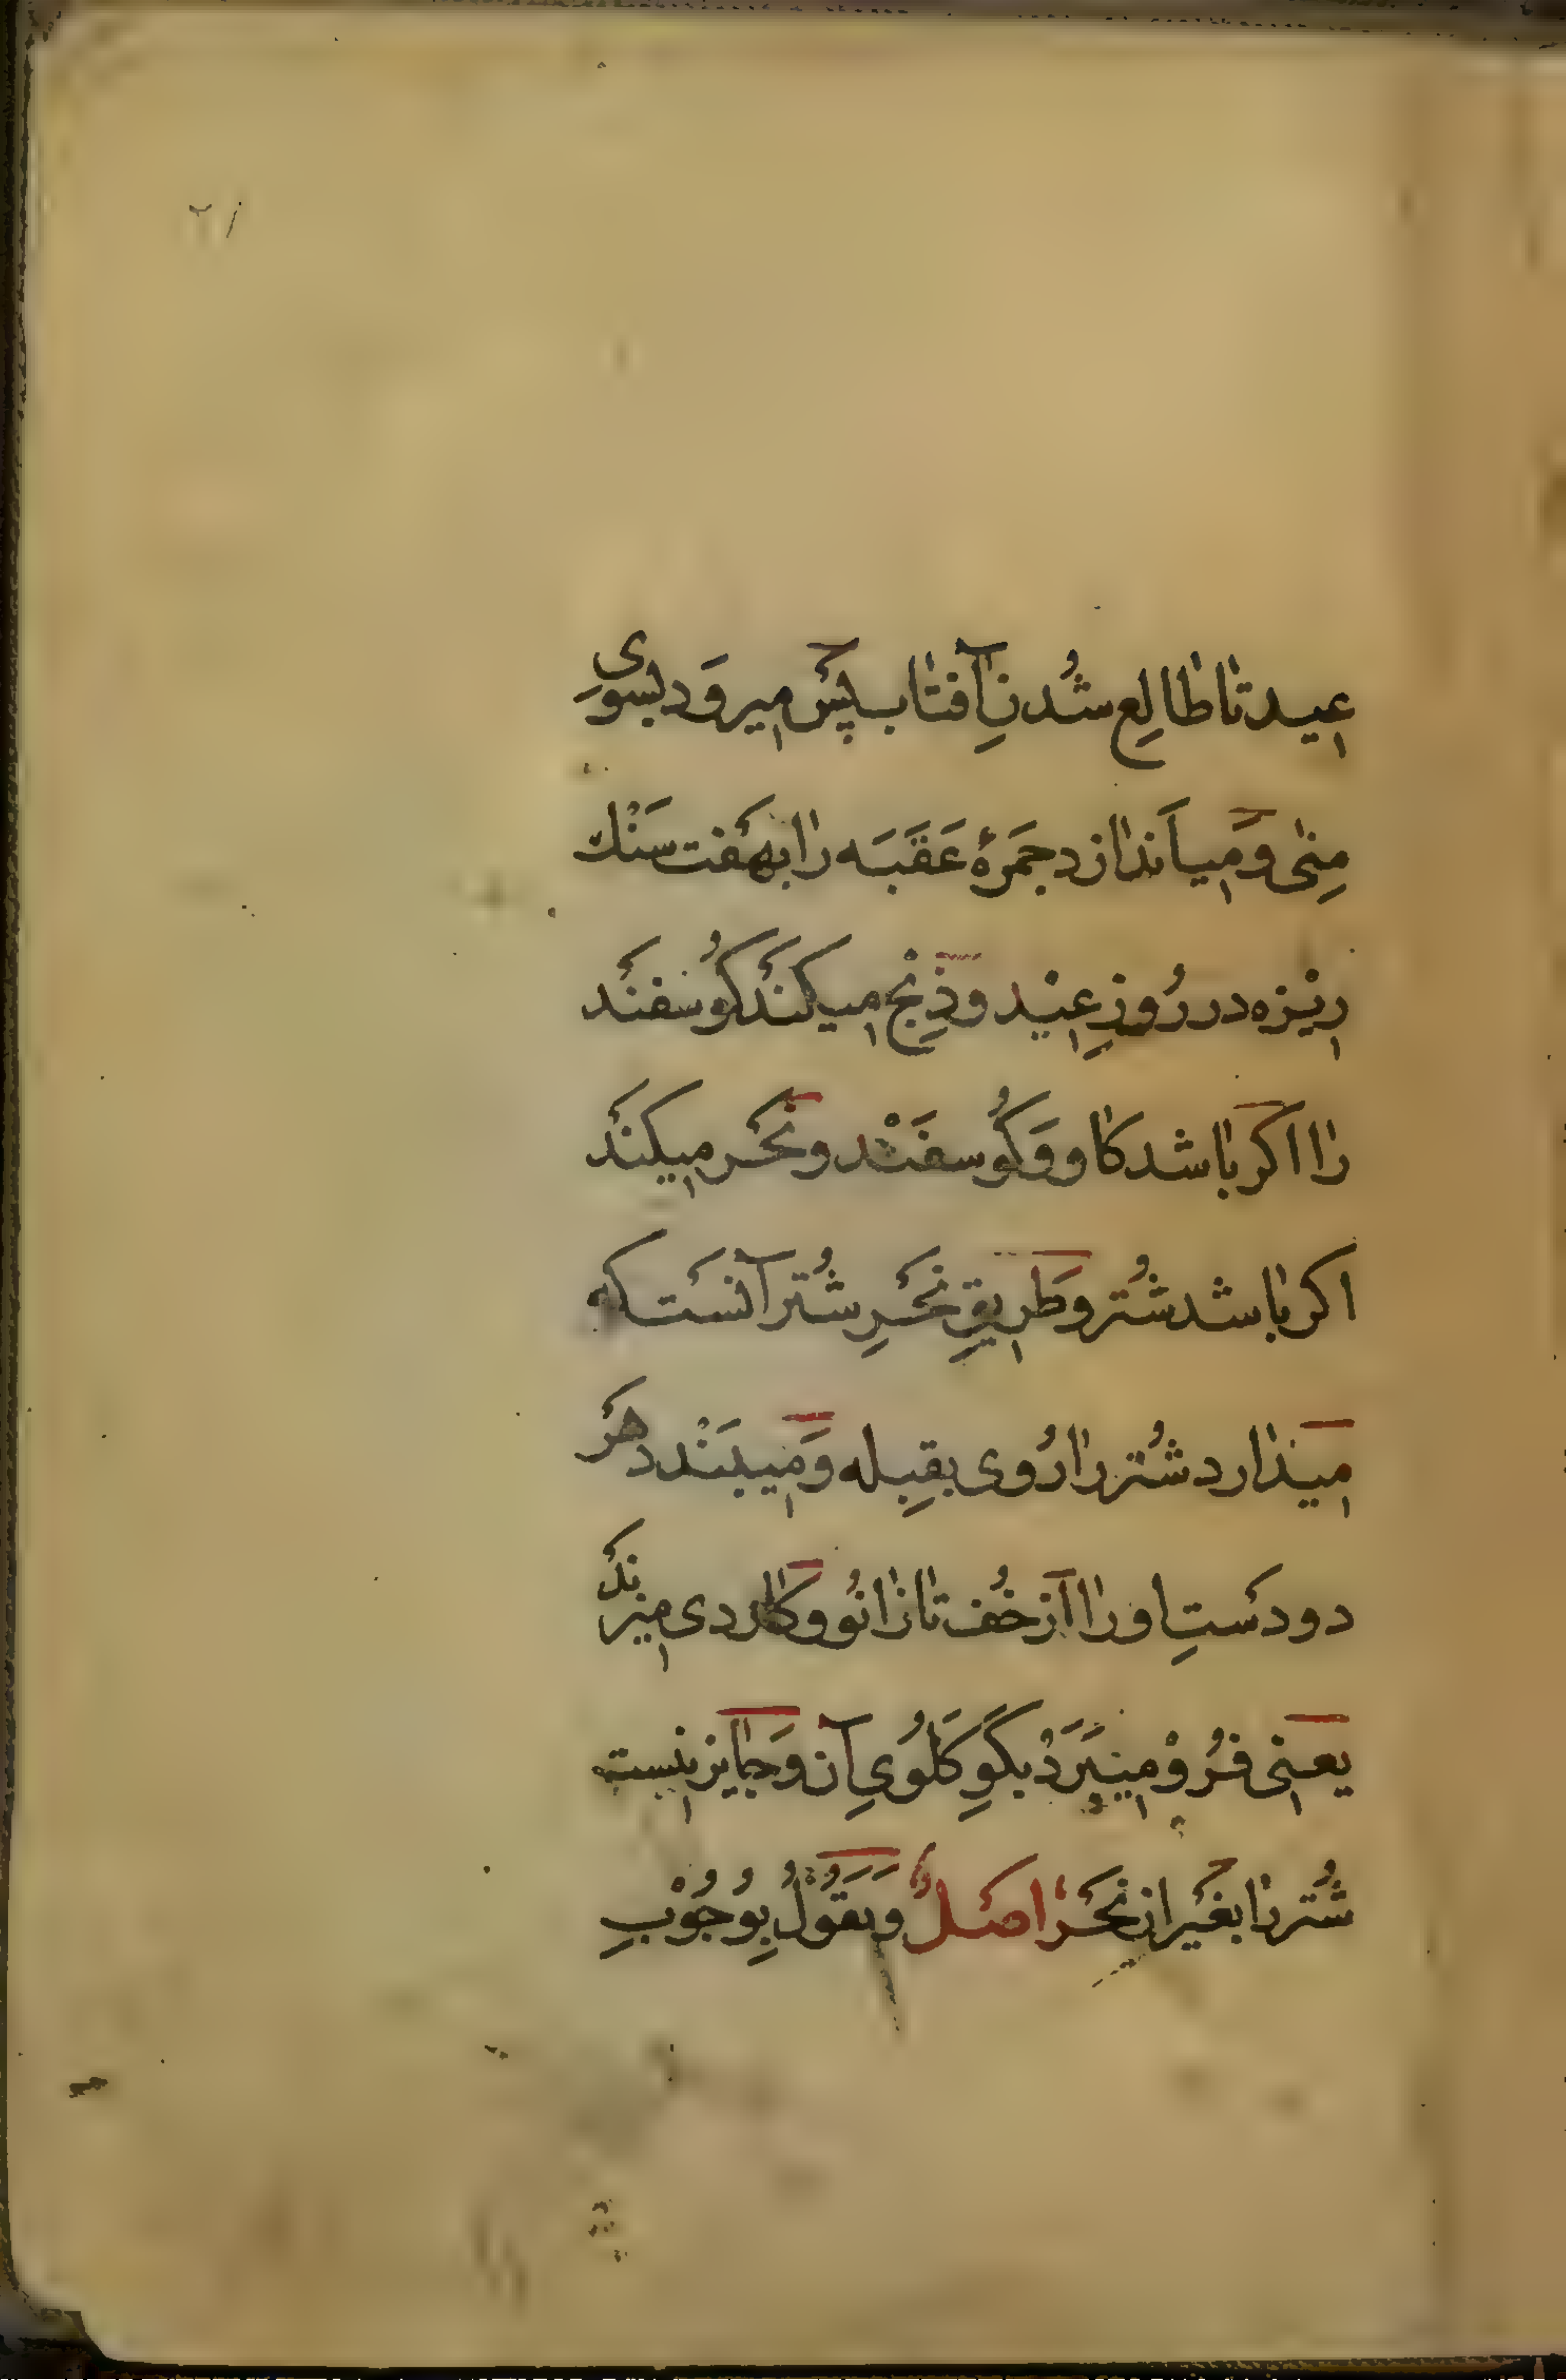 ۲۱
عیِد تا طالِع شُدنِ آفتاب پَس میِروَد بسوَیِ
مِنٰی وَ میِاَندازد جمَرۀ عَقَبَه را بهَفت سَنْك
ریِزه در رُوزِ عیِد وَ ذِبْح میِکنَد کوُسفنَد
را اکَر باشد کاو وَ کوُسفَنْد و نَحْر میِکنَد
اکر باشد شُتر وَ طَریِقِ نَحَرِ شُتر آنسَت که
میِذارد شُتر را رُوی بقِبِله وَ میِبَنْدد هَر
دو دَستِ او را اَز خُف تا زانُو وَ کاردی میِزنَد
یعنیِ فُرُوْ میِبَرَدْ بکَوِ کَلُویِ آن وَ جایز نیِست
شُتر را بغَیر از نَحَر اَصْلٌ وَ یَقُوْلُ بِوُجُوْبِ